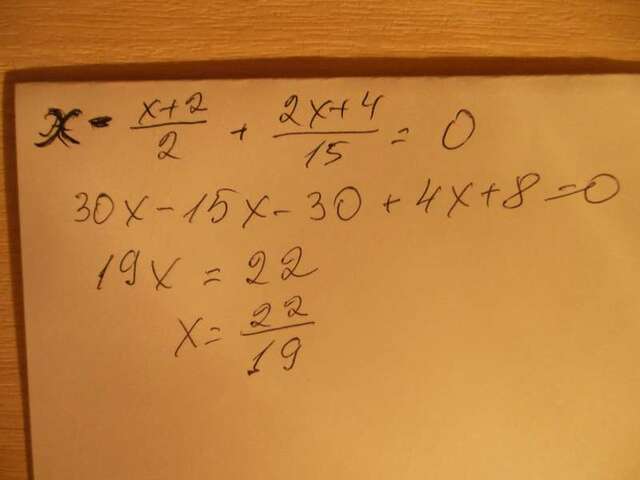 x - \frac{x+2}{2} + \frac{2x+4}{15} = 0
30x - 15x - 30 + 4x + 8 = 0
19x = 22
x = \frac{22}{19}